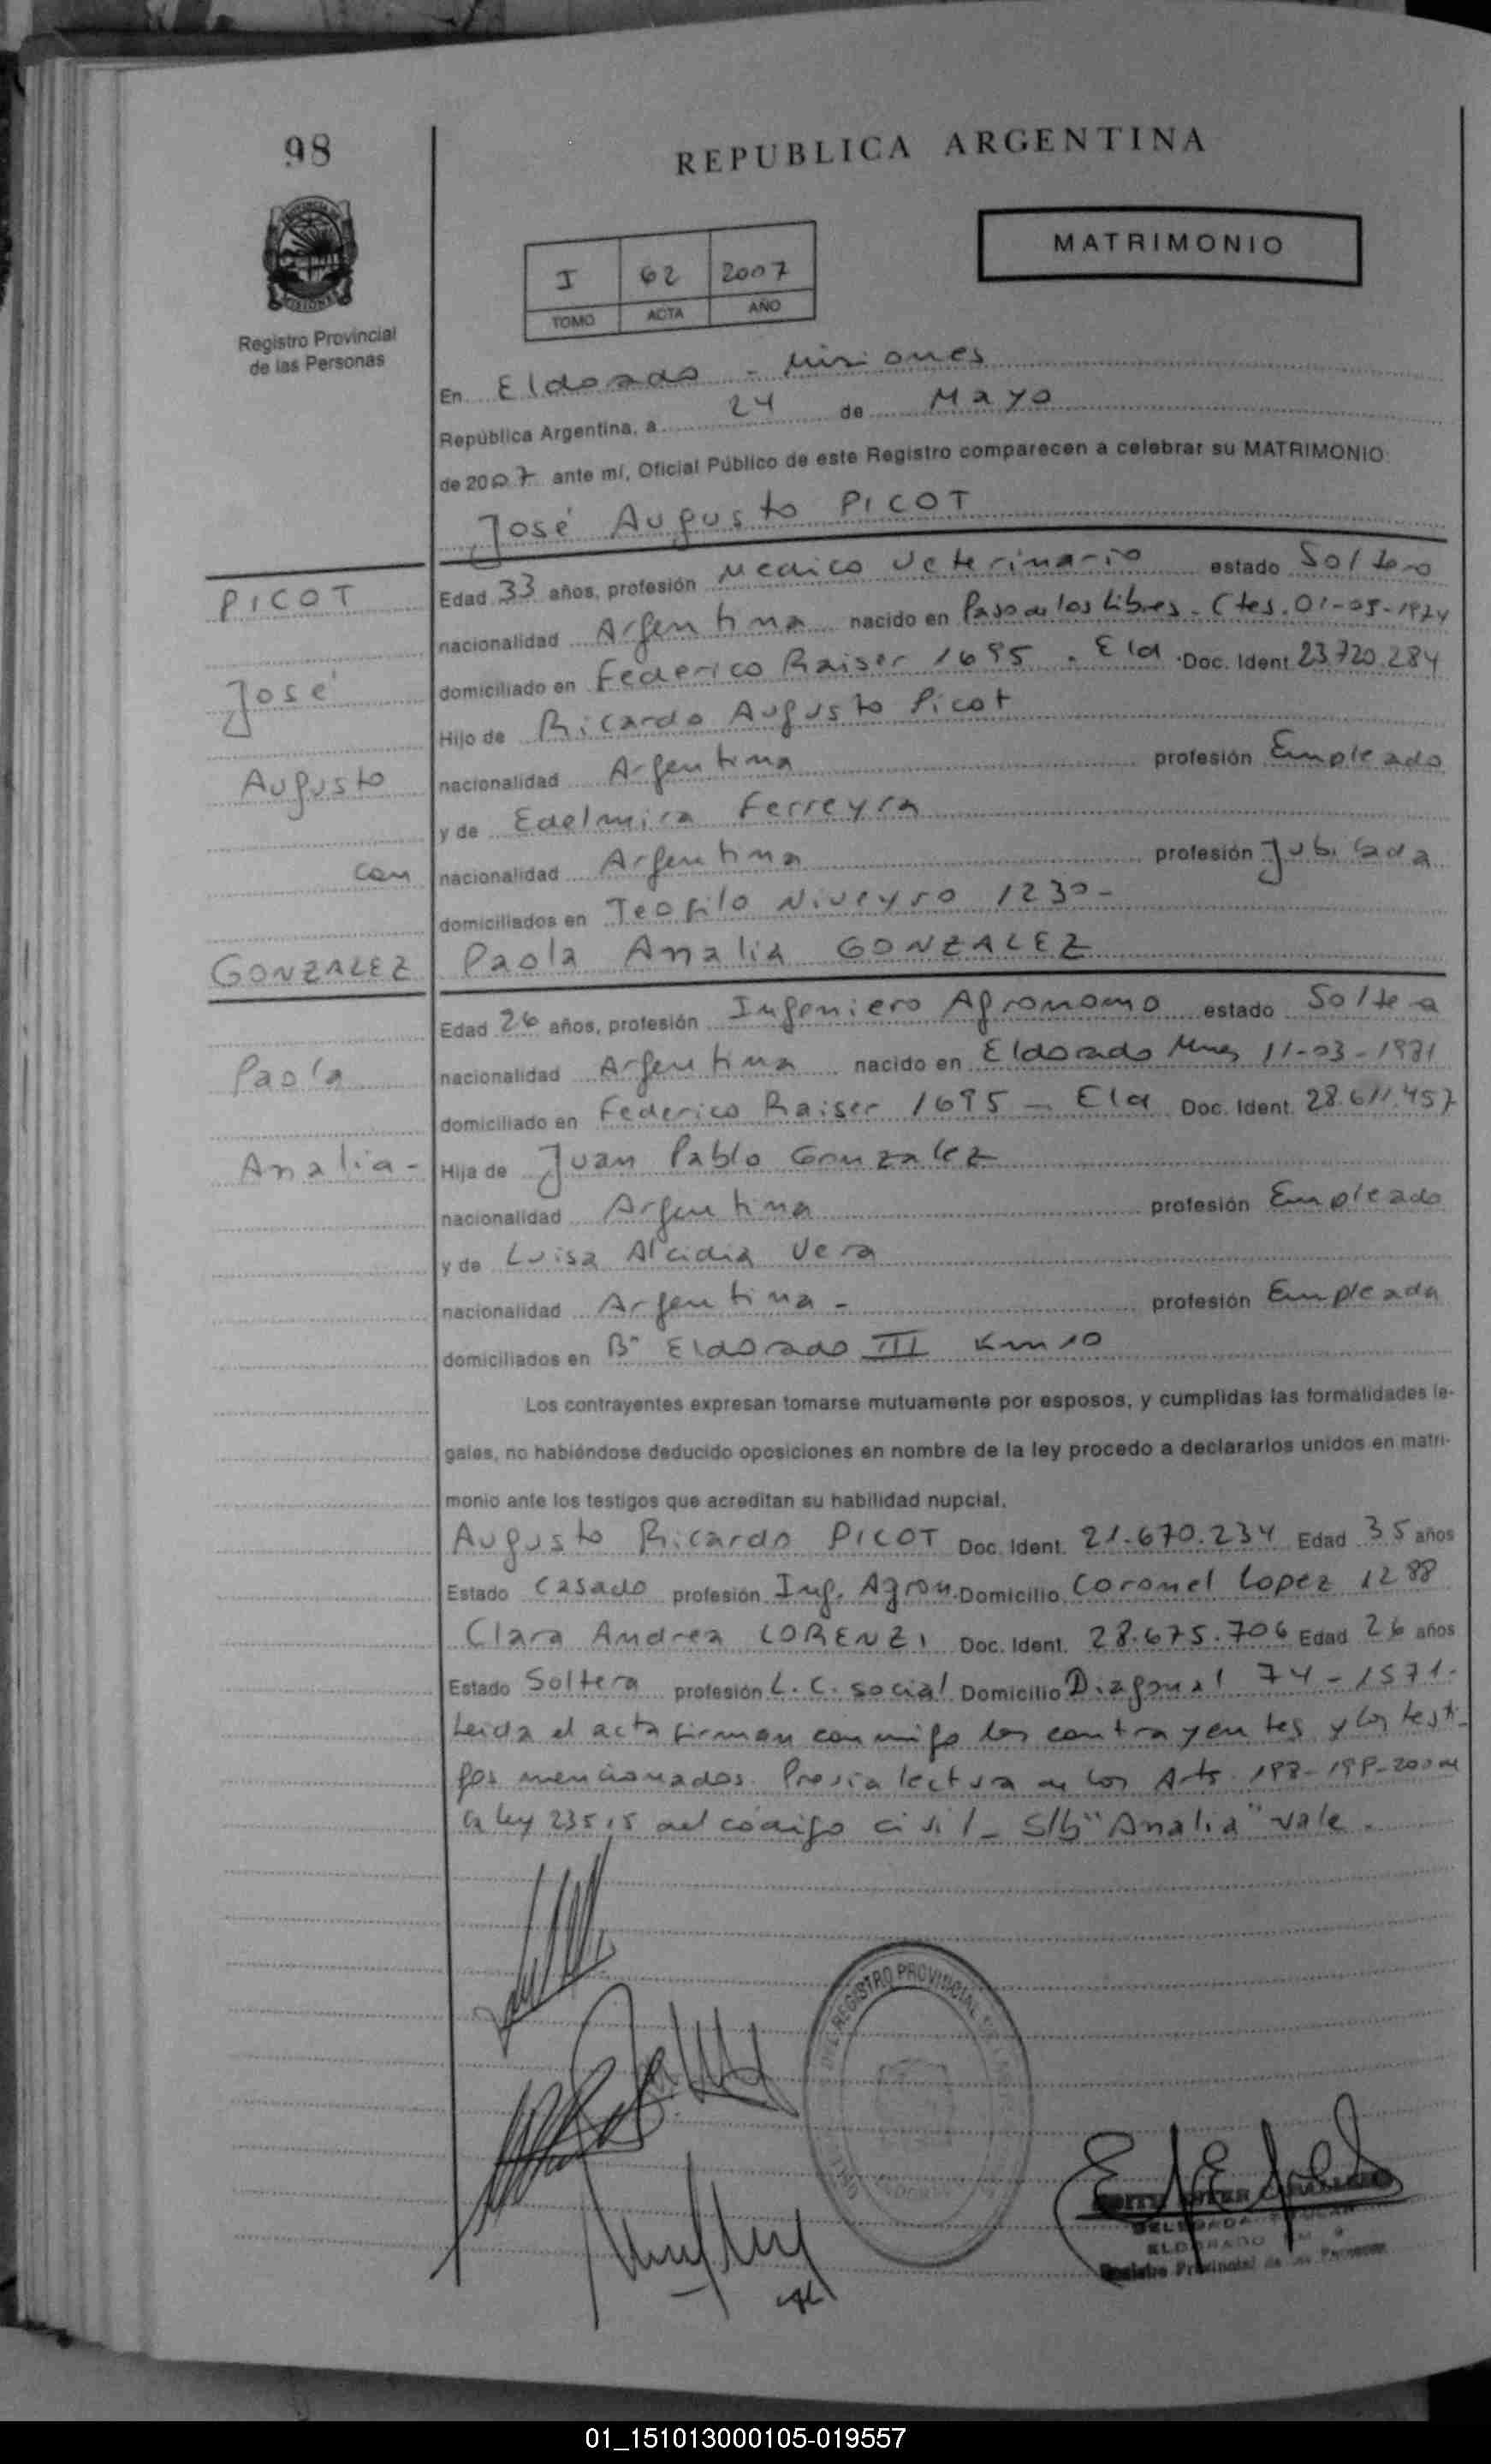 98
REPUBLICA ARGENTINA
PROVINCIA DE
MISIONES
Registro Provincial
de las Personas
MATRIMONIO
I 62 2007
TOMO ACTA AÑO
En Eldorado - Misiones
República Argentina, a 24 de Mayo
de 2007 ante mí, Oficial Público de este Registro comparecen a celebrar su MATRIMONIO:
José Augusto PICOT
PICOT
José
Augusto
con
GONZALEZ
Paola
Analia -
Edad 33 años, profesión Medico Veterinario estado Soltero
nacionalidad Argentina nacido en Paso de los Libres - Ctes. 01-05-1974
domiciliado en Federico Raiser 1695 - Eld. Doc. Ident. 23.720.284
Hijo de Ricardo Augusto Picot
nacionalidad Argentina profesión Empleado
y de Edelmira Ferreyra
nacionalidad Argentina profesión Jubilada
domiciliados en Teofilo Niveyro 1230 -
Paola Analia GONZALEZ
Edad 26 años, profesión Ingeniero Agronomo estado Soltera
nacionalidad Argentina nacido en Eldorado Mnes 11-03-1981
domiciliado en Federico Raiser 1695 - Eld Doc. Ident. 28.611.457
Hija de Juan Pablo Gonzalez
nacionalidad Argentina profesión Empleado
y de Luisa Alcidia Vera
nacionalidad Argentina - profesión Empleada
domiciliados en B° Eldorado III Km 10
Los contrayentes expresan tomarse mutuamente por esposos, y cumplidas las formalidades le-
gales, no habiéndose deducido oposiciones en nombre de la ley procedo a declararlos unidos en matri-
monio ante los testigos que acreditan su habilidad nupcial.
Augusto Ricardo PICOT Doc. Ident. 21.670.234 Edad 35 años
Estado Casado profesión Ing. Agron. Domicilio Coronel Lopez 1288
Clara Andrea LORENZI Doc. Ident. 28.675.706 Edad 26 años
Estado Soltera profesión L. C. social Domicilio Diagonal 74 - 1571.
Leida el acta firman conmigo los contrayentes y los testi-
gos mencionados. Previa lectura de los Arts. 198-199-200 de
la ley 23515 del código civil - S/b "Analia" vale.
REGISTRO PROVINCIAL DE LAS
DELEGADA TITULAR
ELDORADO KM 9
Registro Provincial de las Personas
01_151013000105-019557